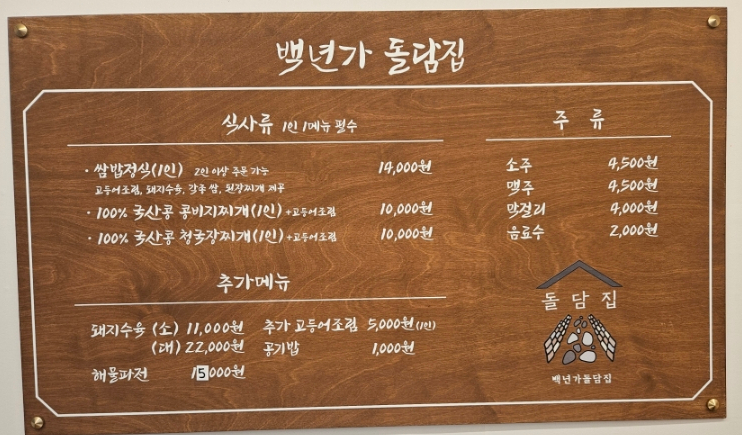 백년가 돌담집
식사류 1인 1메뉴 필수
· 쌈밥정식(1인) 2인 이상 주문 가능 14,000원
고등어조림, 돼지수육, 각종 쌈, 된장찌개 제공
· 100% 국산콩 콩비지찌개(1인) +고등어조림 10,000원
· 100% 국산콩 청국장찌개(1인) +고등어조림 10,000원
추가메뉴
돼지수육 (소) 11,000원 추가 고등어조림 5,000원(1인)
(대) 22,000원 공기밥 1,000원
해물파전 15000원
주 류
소주 4,500원
맥주 4,500원
막걸리 4,000원
음료수 2,000원
돌담집
백년가돌담집